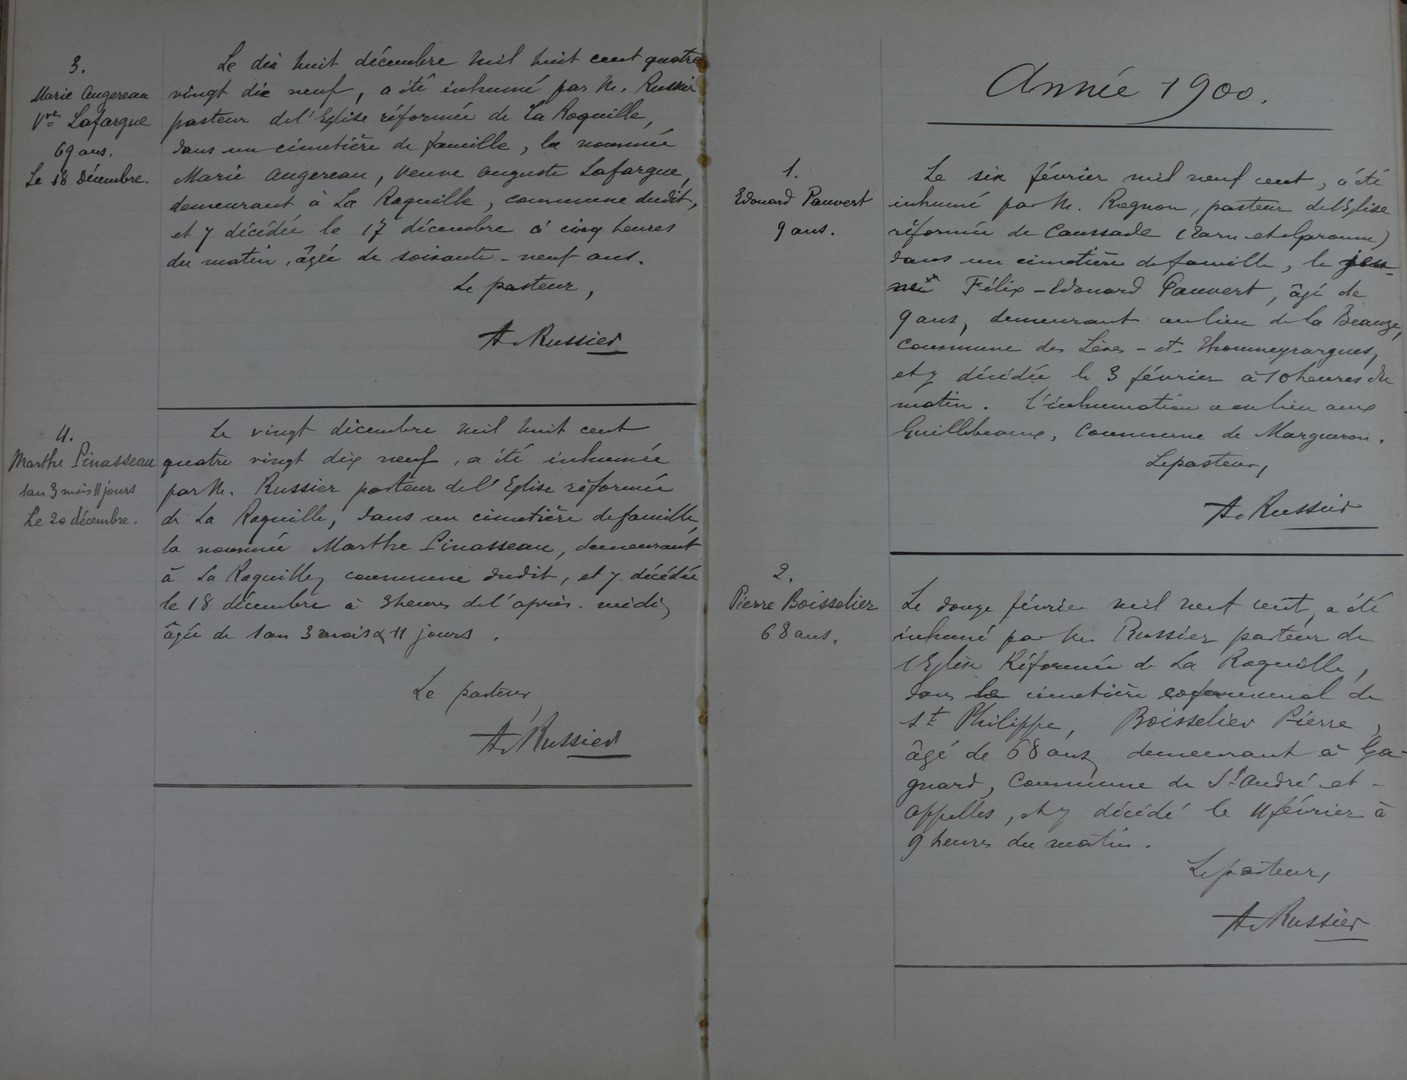 3.
Marie Augereau
Vve Lafargue
69 ans.
Le 18 Décembre.
Le dix huit décembre mil huit cent quatre
vingt dix neuf, a été inhumé par M. Russier
pasteur de l'Eglise réformée de La Roquille,
dans un cimetière de famille, la nommée
Marie Augereau, veuve Auguste Lafargue,
demeurant à La Roquille, commune dudit,
et y décédée le 17 décembre à cinq heures
du matin, âgée de soixante-neuf ans.
Le pasteur,
A. Russier
4.
Marthe Pinasseau
1 an 3 mois 11 jours
Le 20 décembre.
Le vingt décembre mil huit cent
quatre vingt dix neuf, a été inhumée
par M. Russier pasteur de l'Eglise réformée
de La Roquille, dans un cimetière de famille,
la nommée Marthe Pinasseau, demeurant
à La Roquille, commune dudit, et y décédée
le 18 décembre à 3 heures de l'après-midi,
âgée de 1 an 3 mois & 11 jours.
Le pasteur,
A. Russier
Année 1900.
1.
Edouard Pauvert
9 ans.
Le six février mil neuf cent, a été
inhumé par M. Rognon, pasteur de l'Eglise
réformée de Caussade (Tarn-et-Garonne)
dans un cimetière de famille, le
Félix-Edouard Pauvert, âgé de
9 ans, demeurant au lieu de la Beauze,
commune des Lèves-et-Thoumeyrargues,
et y décédée le 3 février à 10 heures du
matin. L'inhumation a eu lieu aux
Guillebeaux, Commune de Margueron.
Le pasteur,
A. Russier
2.
Pierre Boisselier
68 ans.
Le douze février mil neuf cent, a été
inhumé par M. Russier pasteur de
l'Eglise Réformée de La Roquille,
dans le cimetière communal de
St Philippe, Boisselier Pierre,
âgé de 68 ans, demeurant à Ga-
gnard, Commune de St André-et-
appelles, et y décédé le 11 février à
9 heures du matin.
Le pasteur,
A. Russier